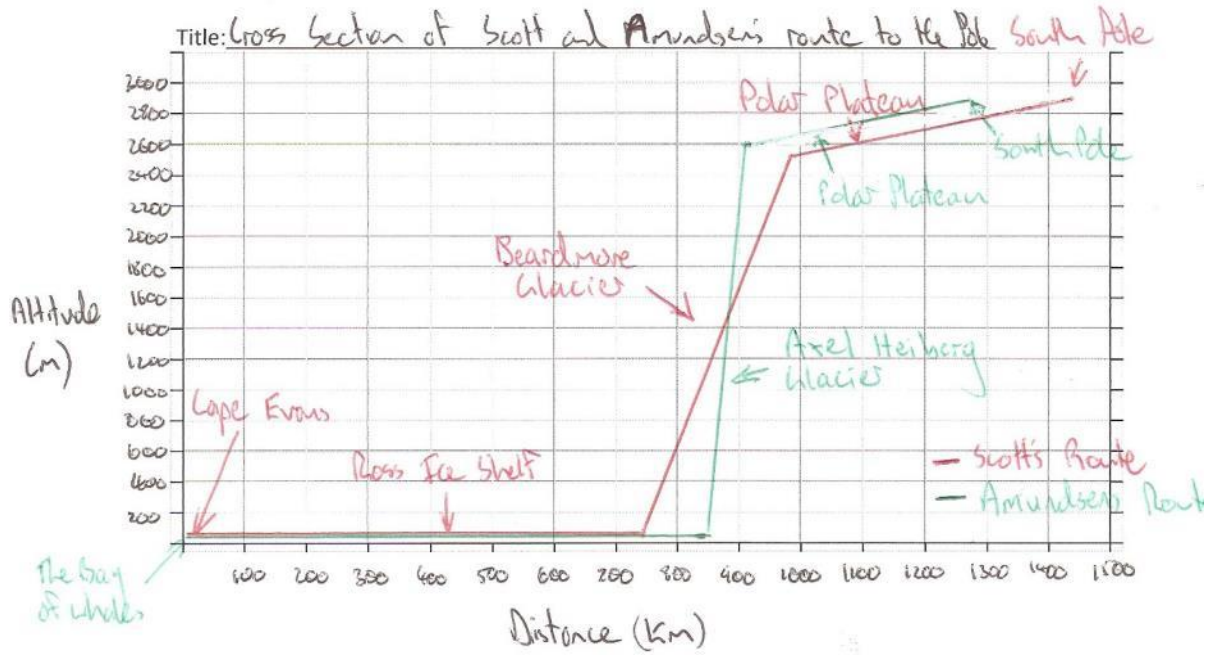 Title: Cross Section of Scott and Amundsen's route to the Pole
South Pole
3000
2800
2600
2400
2200
2000
1800
1600
1400
1200
1000
800
600
400
200
Altitude
(m)
Polar Plateau
South Pole
Polar Plateau
Beardmore
Glacier
Axel Heiberg
Glacier
Cape Evans
Ross Ice Shelf
Scott's Route
Amundsen's Route
The Bay
of Whales
100 200 300 400 500 600 700 800 900 1000 1100 1200 1300 1400 1500
Distance (Km)